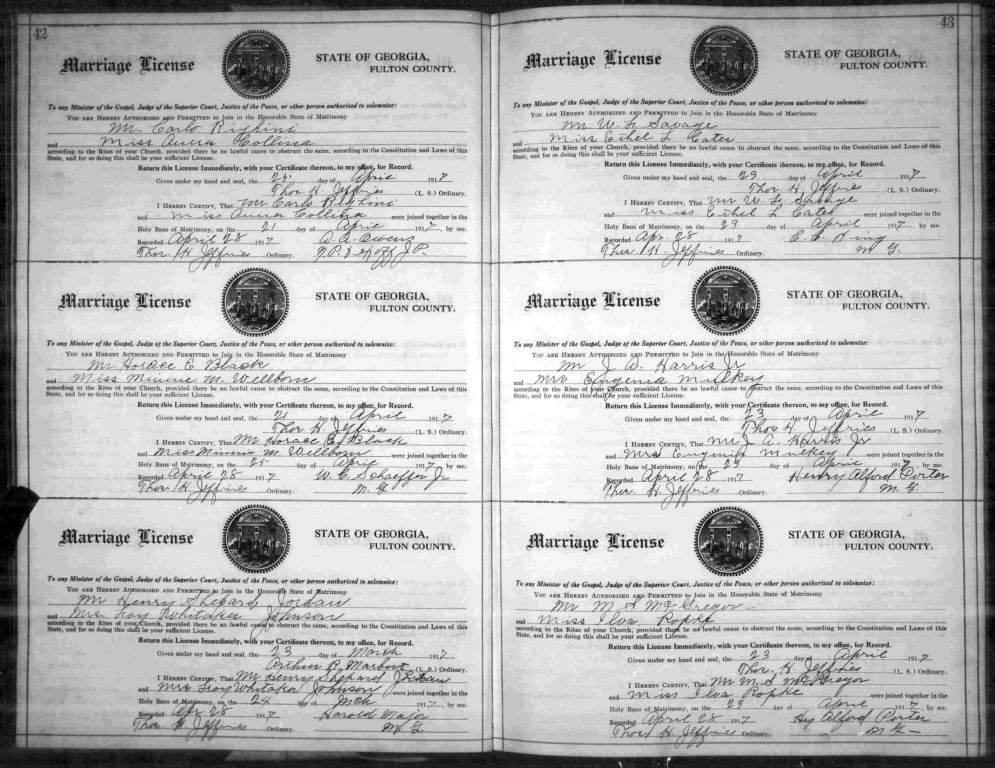 42
Marriage License
STATE OF GEORGIA,
FULTON COUNTY.
To any Minister of the Gospel, Judge of the Superior Court, Justice of the Peace, or other person authorized to solemnize:
YOU ARE HEREBY AUTHORIZED AND PERMITTED to Join in the Honorable State of Matrimony
Mr. Carlo Righini
and Miss Anna Collina
according to the Rites of your Church, provided there be no lawful cause to obstruct the same, according to the Constitution and Laws of this
State, and for so doing this shall be your sufficient License.
Return this License Immediately, with your Certificate thereon, to my office, for Record.
Given under my hand and seal, the day of April 1917
Thos. H. Jeffries (L. S.) Ordinary.
I HEREBY CERTIFY, That Mr Carlo Righini
and Miss Anna Collina were joined together in the
Holy Bans of Matrimony, on the 21 day of April 1917, by me.
Recorded April 28 1917 A. A. Owens
Thos. H Jeffries Ordinary. J.P.
Marriage License
STATE OF GEORGIA,
FULTON COUNTY.
To any Minister of the Gospel, Judge of the Superior Court, Justice of the Peace, or other person authorized to solemnize:
YOU ARE HEREBY AUTHORIZED AND PERMITTED to Join in the Honorable State of Matrimony
Mr Horace E. Black
and Miss Minnie M. Wellborn
according to the Rites of your Church, provided there be no lawful cause to obstruct the same, according to the Constitution and Laws of this
State, and for so doing this shall be your sufficient License.
Return this License Immediately, with your Certificate thereon, to my office, for Record.
Given under my hand and seal, the 21 day of April 1917
Thos H. Jeffries (L. S.) Ordinary.
I HEREBY CERTIFY, That Mr Horace E. Black
and Miss Minnie M. Wellborn were joined together in the
Holy Bans of Matrimony, on the 25 day of April 1917, by me.
Recorded April 28 1917 W. C. Schaeffer Jr
Thos H Jeffries Ordinary. M. G.
Marriage License
STATE OF GEORGIA,
FULTON COUNTY.
To any Minister of the Gospel, Judge of the Superior Court, Justice of the Peace, or other person authorized to solemnize:
YOU ARE HEREBY AUTHORIZED AND PERMITTED to Join in the Honorable State of Matrimony
Mr Henry Shepard Jordan
and Mrs Whitaker Johnson
according to the Rites of your Church, provided there be no lawful cause to obstruct the same, according to the Constitution and Laws of this
State, and for so doing this shall be your sufficient License.
Return this License Immediately, with your Certificate thereon, to my office, for Record.
Given under my hand and seal, the 23 day of March 1917
Arthur R. Marbut (L. S.) Ordinary.
I HEREBY CERTIFY, That Mr Henry Shepard Jordan
and Mrs Whitaker Johnson were joined together in the
Holy Bans of Matrimony, on the 24 day of Mch 1917, by me.
Recorded Apr 28 1917 Harold Major
Thos H. Jeffries Ordinary. M. G.
43
Marriage License
STATE OF GEORGIA,
FULTON COUNTY.
To any Minister of the Gospel, Judge of the Superior Court, Justice of the Peace, or other person authorized to solemnize:
YOU ARE HEREBY AUTHORIZED AND PERMITTED to Join in the Honorable State of Matrimony
Mr W. L. Savage
and Miss Ethel L Cater
according to the Rites of your Church, provided there be no lawful cause to obstruct the same, according to the Constitution and Laws of this
State, and for so doing this shall be your sufficient License.
Return this License Immediately, with your Certificate thereon, to my office, for Record.
Given under my hand and seal, the 23 day of April 1917
Thos H. Jeffries (L. S.) Ordinary.
I HEREBY CERTIFY, That Mr W. L. Savage
and Miss Ethel L Cater were joined together in the
Holy Bans of Matrimony, on the 29 day of April 1917, by me.
Recorded Apr. 28 1917 King
Thos. H. Jeffries Ordinary. M G.
Marriage License
STATE OF GEORGIA,
FULTON COUNTY.
To any Minister of the Gospel, Judge of the Superior Court, Justice of the Peace, or other person authorized to solemnize:
YOU ARE HEREBY AUTHORIZED AND PERMITTED to Join in the Honorable State of Matrimony
Mr J. A. Harris Jr
and Mrs Eugenia Mulkey
according to the Rites of your Church, provided there be no lawful cause to obstruct the same, according to the Constitution and Laws of this
State, and for so doing this shall be your sufficient License.
Return this License Immediately, with your Certificate thereon, to my office, for Record.
Given under my hand and seal, the 23 day of April 1917
Thos H. Jeffries (L. S.) Ordinary.
I HEREBY CERTIFY, That Mr J. A. Harris Jr
and Mrs Eugenia Mulkey were joined together in the
Holy Bans of Matrimony, on the 23 day of April 1917, by me.
Recorded April 28 1917 Henry Alford Porter
Thos. H. Jeffries Ordinary. M. G.
Marriage License
STATE OF GEORGIA,
FULTON COUNTY.
To any Minister of the Gospel, Judge of the Superior Court, Justice of the Peace, or other person authorized to solemnize:
YOU ARE HEREBY AUTHORIZED AND PERMITTED to Join in the Honorable State of Matrimony
Mr M. S McGregor
and Miss Ilva Ropke
according to the Rites of your Church, provided there be no lawful cause to obstruct the same, according to the Constitution and Laws of this
State, and for so doing this shall be your sufficient License.
Return this License Immediately, with your Certificate thereon, to my office, for Record.
Given under my hand and seal, the 23 day of April 1917
Thos. H. Jeffries (L. S.) Ordinary.
I HEREBY CERTIFY, That Mr M. S McGregor
and Miss Ilva Ropke were joined together in the
Holy Bans of Matrimony, on the 23 day of April 1917, by me.
Recorded April 28 1917 Hy Alford Porter
Thos H. Jeffries Ordinary. M G